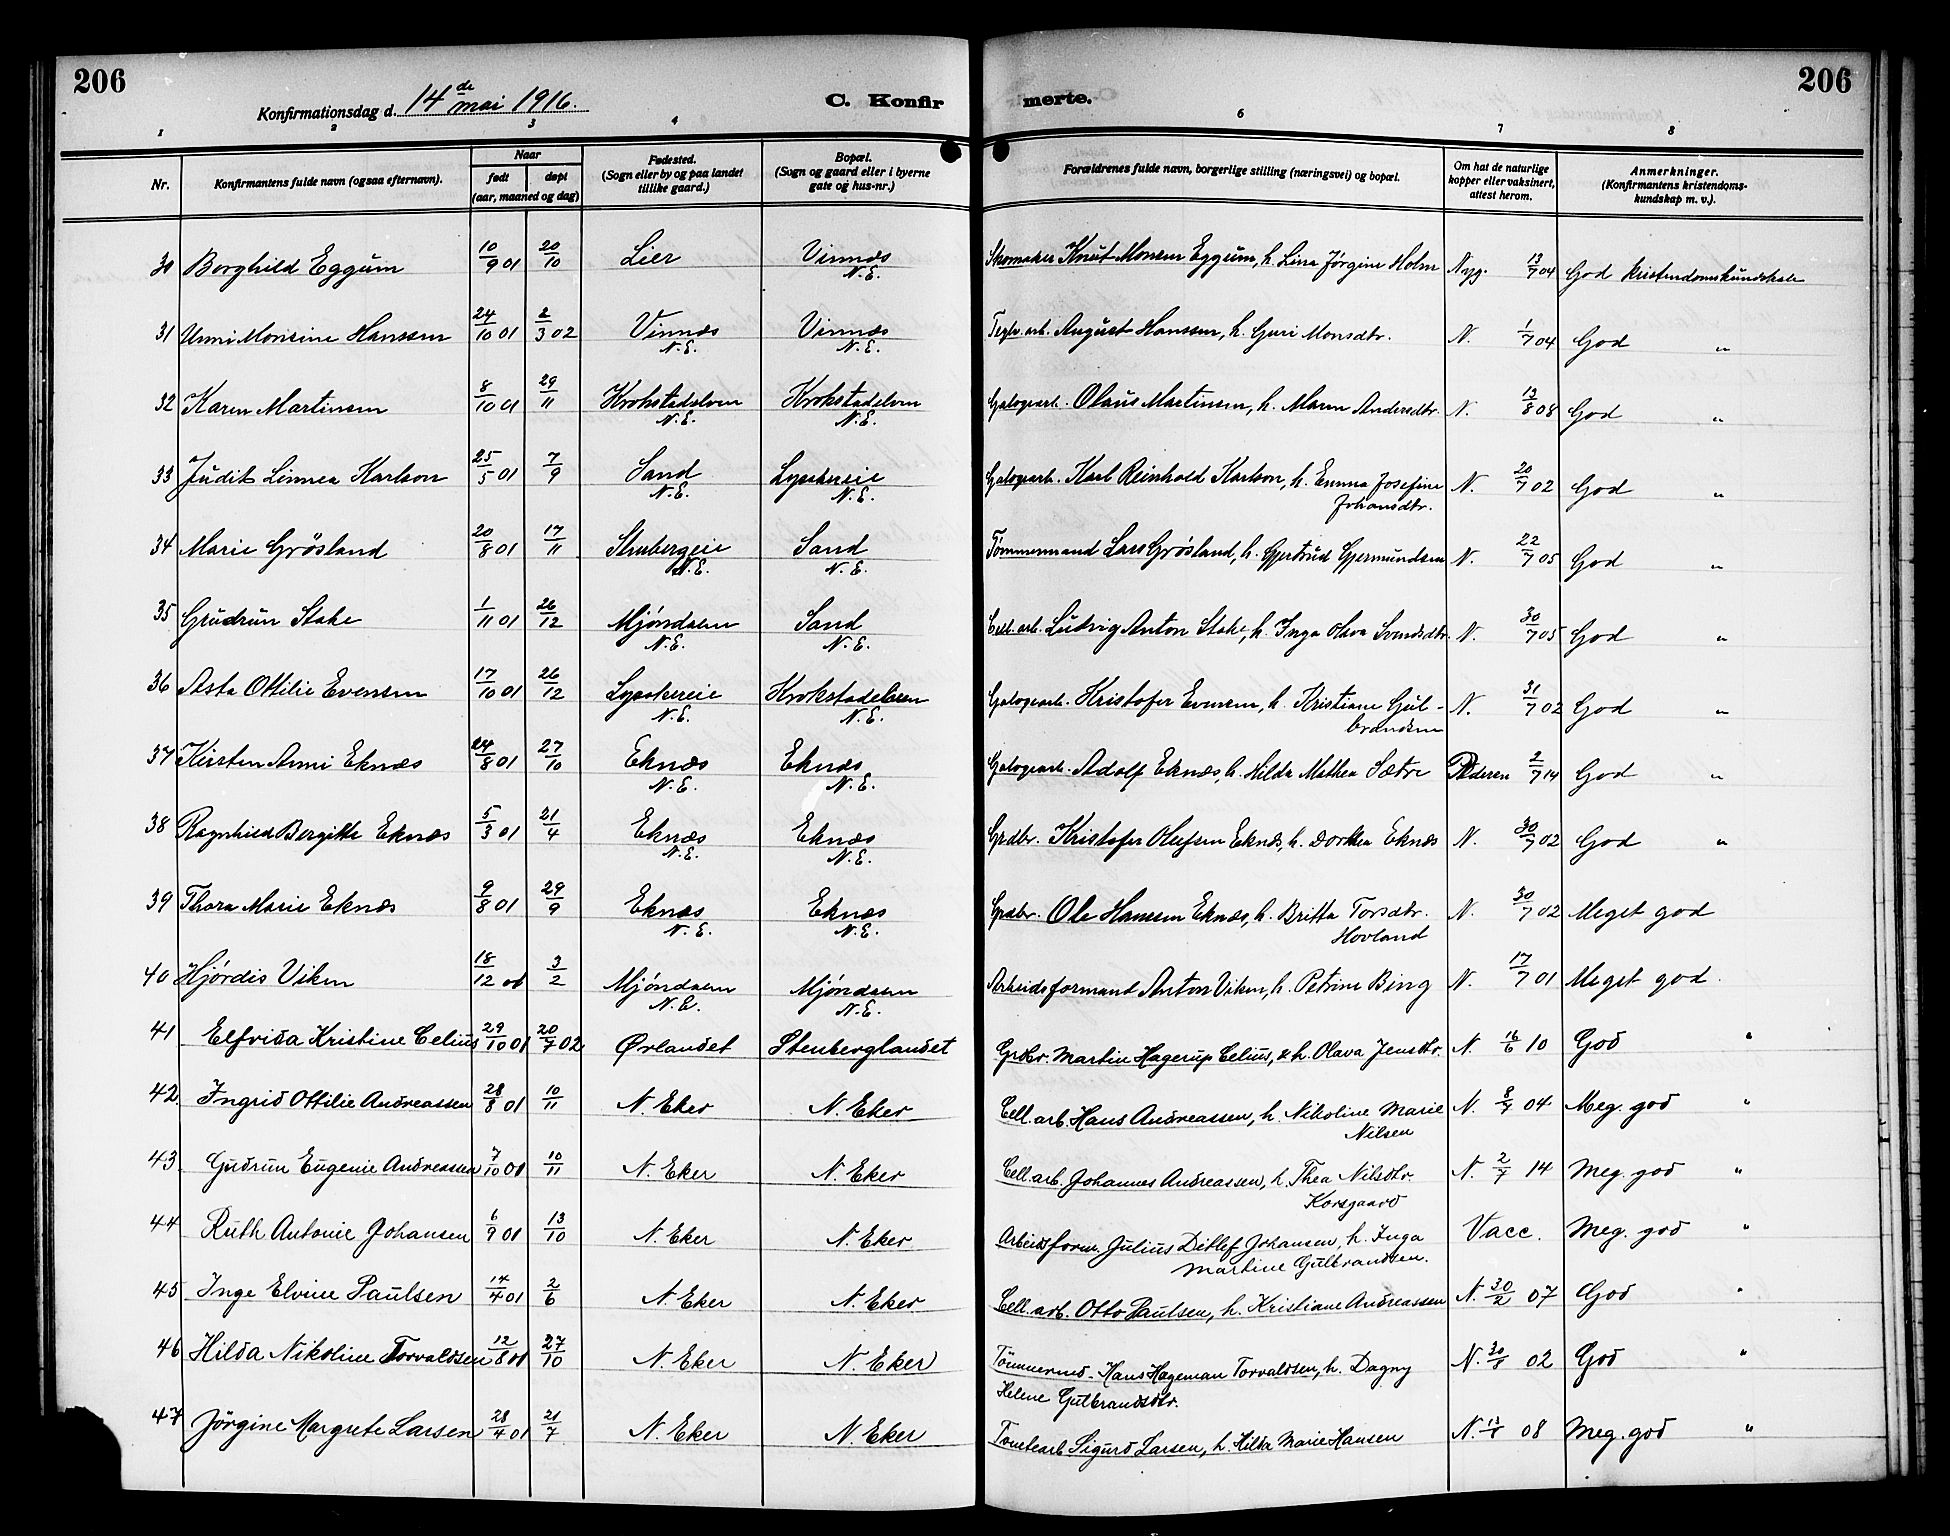 206
206
Konfirmationsdag d. 14de mai 1916.
C. Konfir
merte.
1 2 3 4 6 7 8
Nr.
Konfirmantens fulde navn (ogsaa efternavn).
Naar
født
døpt
(aar, maaned og dag)
Fødested.
(Sogn eller by og paa landet
tillike gaard.)
Bopæl.
(Sogn og gaard eller i byerne
gate og hus-nr.)
Forældrenes fulde navn, borgerlige stilling (næringsvei) og bopæl.
Om hat de naturlige
kopper eller vaksinert,
attest herom.
Anmerkninger.
(Konfirmantens kristendoms-
kundskap m. v.).
30 Borghild Eggum 10/9 01 20/10 Lier Vinnæs Skomaker Knut Monsen Eggum, h. Lina Jörgine Holm Nyg. 13/7 04 God kristendomskundskab
N.E.
31 Unni Monsine Hanssen 24/10 01 2/3 02 Vinnæs Vinnæs Teglv.arb. August Hanssen, h. Guri Monsdtr. N. 1/7 04 God "
N.E. N.E.
32 Karen Martinsen 8/10 01 29/11 Krokstadelven Krokstadelven Galogearb. Olaus Martinsen, h. Maren Andersdtr. N. 13/8 08 God "
N.E. N.E.
33 Judit Linnea Karlson 25/5 01 7/9 Sand Lyskereie Galogearb. Karl Reinhold Karlson, h. Emma Josefine N. 20/7 02 God "
N.E. N.E. Johansdtr.
34 Marie Grösland 20/8 01 17/11 Stubergeie Sand Tömmermand Lars Grösland, h. Gjertrud Gjermundsen N. 22/7 05 God "
N.E. N.E.
35 Gudrun Stake 1/11 01 26/12 Mjöndalen Sand Cell.arb. Ludvig Anton Stake, h. Inga Olava Svendsdtr. N. 30/7 05 God "
N.E. N.E.
36 Asta Ottilie Evensen 17/10 01 26/12 Lyskereie Krokstadelven Galogearb. Kristofer Evensen, h. Kristiane Gul- N. 31/7 02 God "
N.E. N.E. brandsen
37 Kirsten Anni Eknæs 24/8 01 27/10 Eknæs Eknæs Galogearb. Adolf Eknæs, h. Hilda Mathea Sætre Pedersen 2/7 14 God "
N.E. N.E.
38 Ragnhild Bergitte Eknæs 5/3 01 21/4 Eknæs Eknæs Grdbr. Kristofer Olefsen Eknæs, h. Dorthea Eknæs N. 30/7 02 God "
N.E. N.E.
39 Thora Marie Eknæs 9/8 01 29/9 Eknæs Eknæs Grdbr. Ole Hansen Eknæs, h. Britta Torsdtr. N. 30/7 02 Meget god
N.E. N.E. Hovland
40 Hjördis Viken 18/12 01 3/2 Mjöndalen Mjöndalen Arbeidsformand Anton Viken, h. Petrine Bing N. 17/7 01 Meget god.
N.E. N.E.
41 Elfrida Kristine Celius 29/10 01 20/7 02 Ørlandet Stenberglandet Grdbr. Martin Hagerup Celius, & h. Olava Jensdtr. N. 16/6 10 God "
42. Ingrid Ottilie Andreassen 28/8 01 10/11 N. Eker N. Eker Cell.arb. Hans Andreassen, h. Nikoline Marie N. 8/7 04 Meg. god "
Nilsen
43 Gudrun Eugenie Andreassen 7/10 01 10/11 N. Eker N. Eker Cell.arb. Johannes Andreassen, h. Thea Nilsdtr. N. 2/7 14 Meg. god "
Korsgaard
44 Ruth Antonie Johansen 6/9 01 13/10 N. Eker N. Eker Arbeidsform. Julius Ditlef Johansen, h. Inga Vacc. Meg. god "
Martine Gulbrandsen.
45 Inge Elvine Paulsen 14/4 01 2/6 N. Eker N. Eker Cell. arb. Otto Paulsen, h. Kristiane Andreassen N. 30/2 07 God "
46 Hilda Nikoline Torvaldsen 12/8 01 27/10 N. Eker N. Eker Tömmermd. Hans Hageman Torvaldsen, h. Dagny N. 30/8 02 God "
Helene Gulbrandsdtr.
47 Jörgine Margrete Larsen 28/4 01 21/7 N. Eker N. Eker Tomtearb. Sigurd Larsen, h. Hilda Marie Hansen N. 13/8 08 Meg. god "